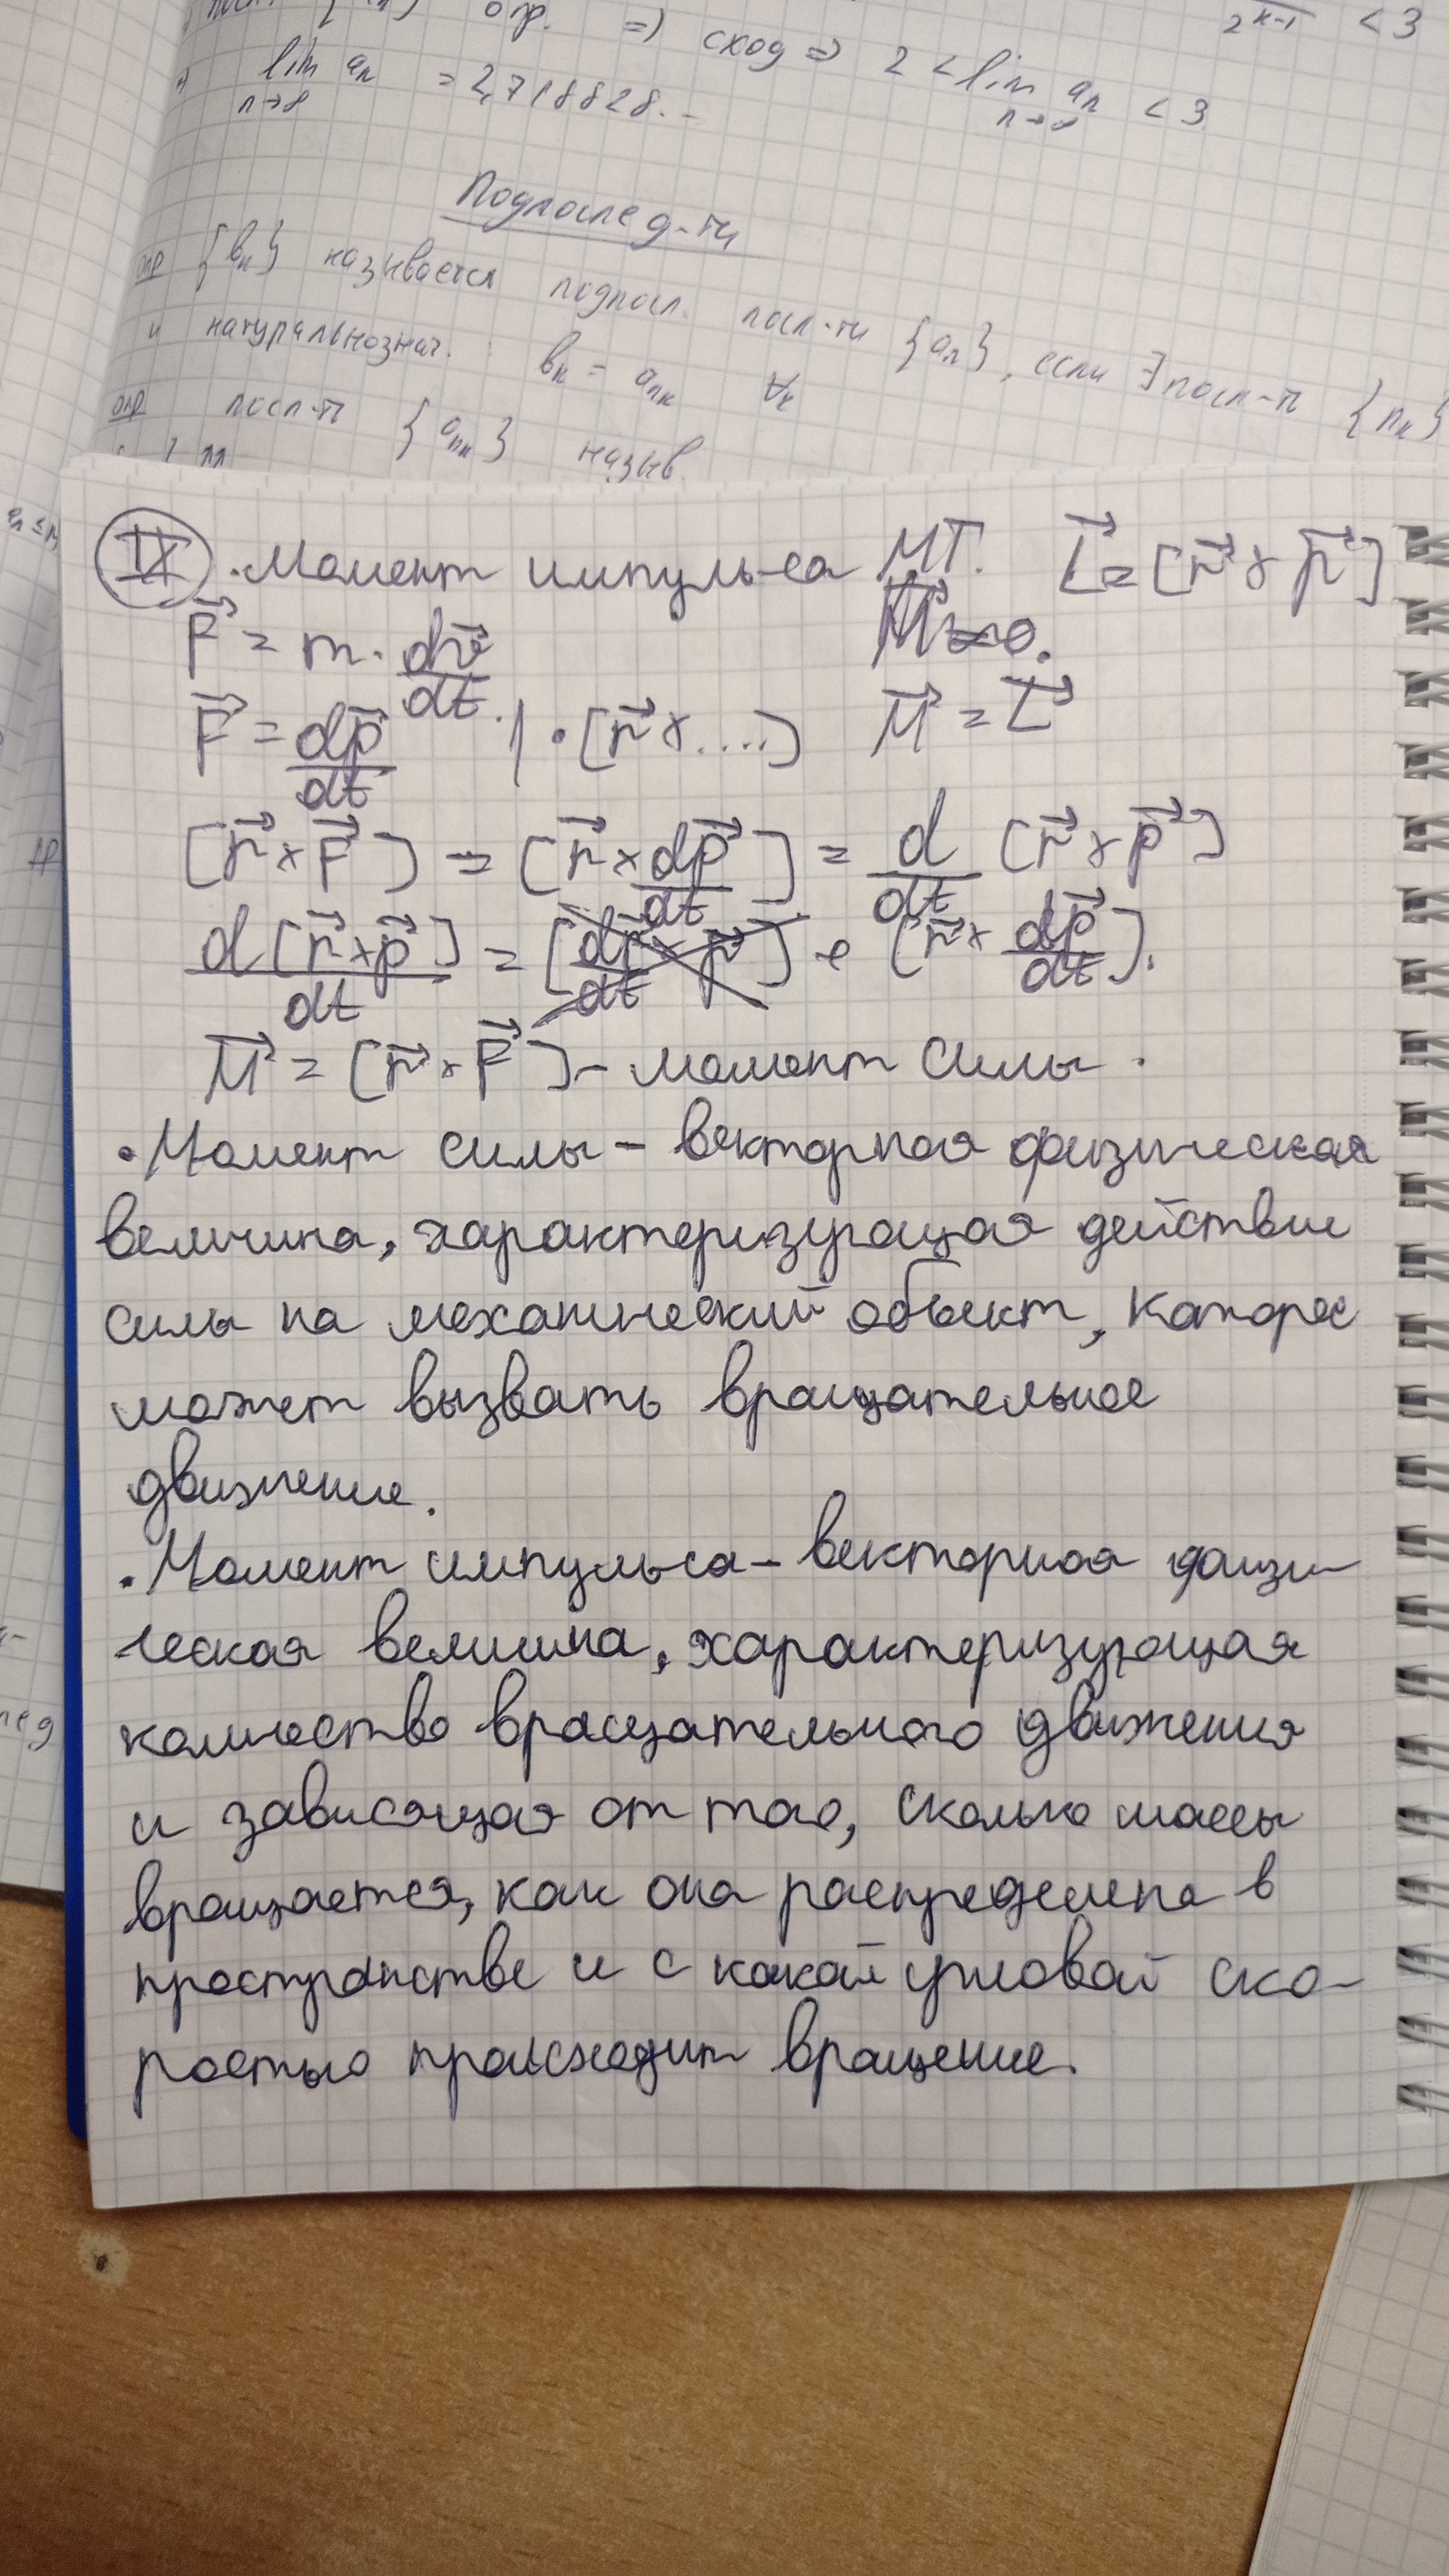 опр. => сход => 2 < lim aₙ < 3
n→∞
2ᵏ⁻¹ < 3
lim aₙ = 2,718828...
n→∞
Подпослед-ти
опр {bₖ} называется подпосл. посл-ти {aₙ}, если ∃ посл-ть {nₖ}
и натуральнознач. : bₖ = aₙₖ ∀ₖ
опр посл-ть {aₙₖ} назыв
IX . Момент импульса МТ. L⃗ = [r⃗ × p⃗]
F⃗ = m · dv⃗/dt
F⃗ = dp⃗/dt | · [r⃗ × ....] M⃗ = L⃗
[r⃗ × F⃗] = [r⃗ × dp⃗/dt] = d/dt [r⃗ × p⃗]
d[r⃗ × p⃗]/dt = [dr⃗/dt × p⃗] + [r⃗ × dp⃗/dt].
M⃗ = [r⃗ × F⃗] – момент силы.
• Момент силы – векторная физическая
величина, характеризующая действие
силы на механический объект, которое
может вызвать вращательное
движение.
• Момент импульса – векторная физи-
ческая величина, характеризующая
количество вращательного движения
и зависящая от того, сколько массы
вращается, как она распределена в
пространстве и с какой угловой ско-
ростью происходит вращение.